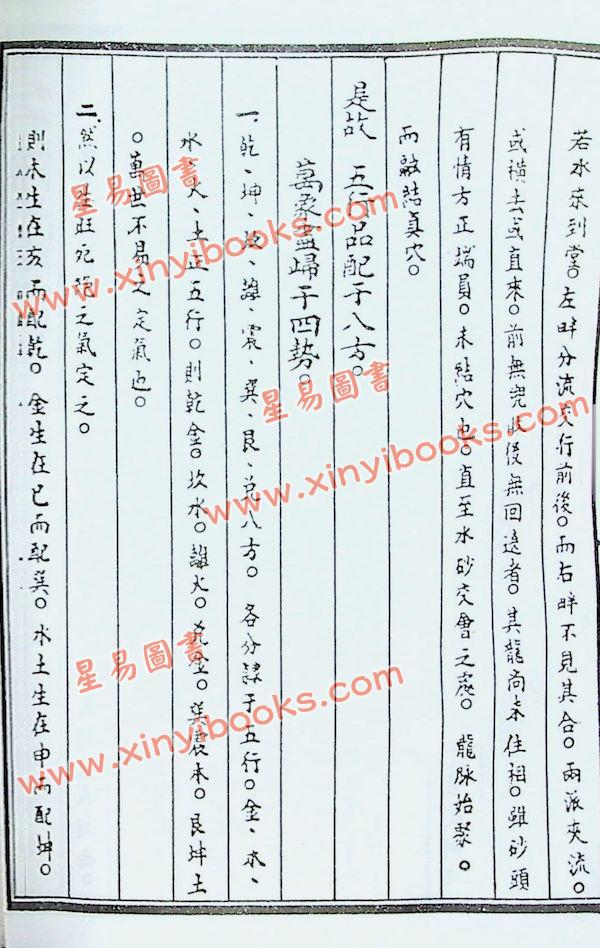 若水來到堂。左畔分流交行前後。而右畔不見其合。兩派夾流。
或橫去或直來。前無兜收後無回遶者。其龍尚未住相。雖砂頭
有情方正端員。未結穴也。直至水砂交會之處。龍脉始聚。
而融結真穴。
是故 五行品配于八方。
萬象盡歸于四勢。
一、乾、坤、坎、離、震、巽、艮、兌八方。各分隸于五行。金、木、
水、火、土正五行。則乾金。坎水。離火。兌金。巽震木。艮坤土
。萬世不易之定氣也。
二、然以生旺死絕之氣定之。
則木生在亥而配乾。金生在巳而配巽。水土生在申而配坤。
星易圖書
www.xinyibooks.com
星易圖書
www.xinyibooks.com
星易圖書
www.xinyibooks.com